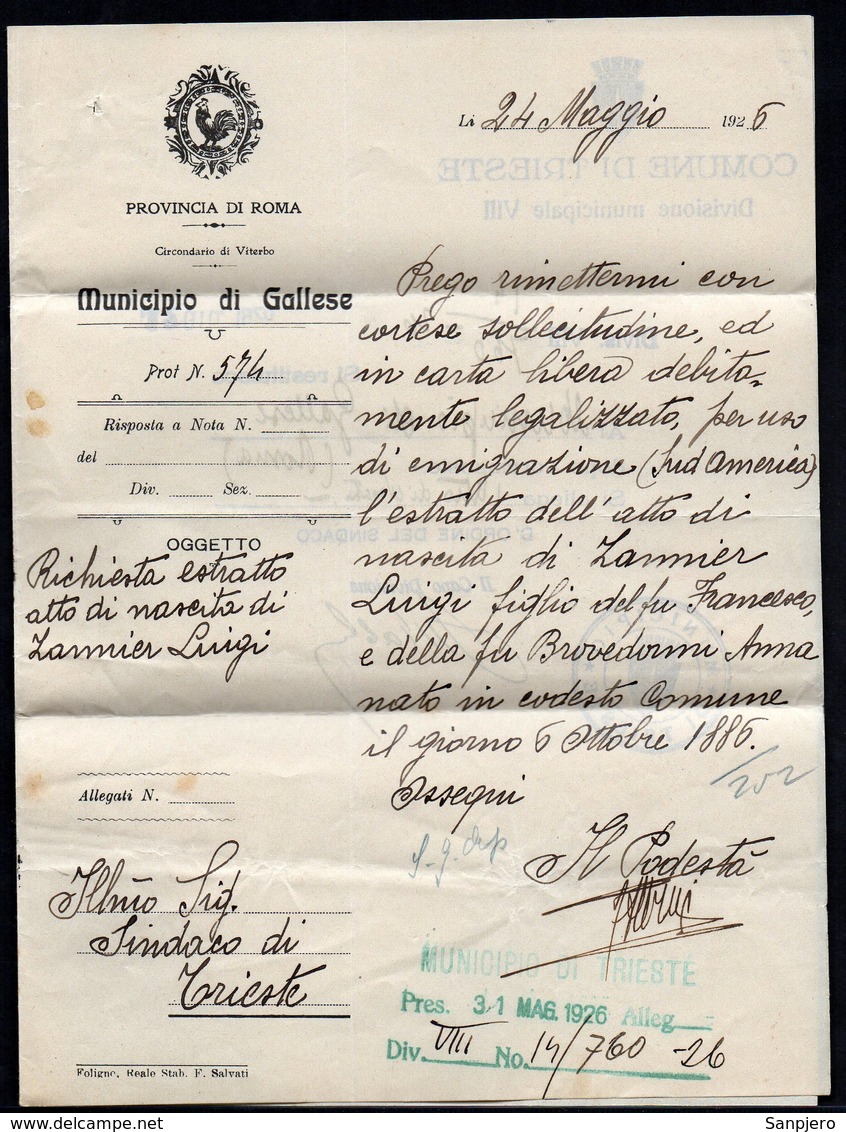 PROVINCIA DI ROMA
Circondario di Viterbo
Municipio di Gallese
Prot N. 574
Risposta a Nota N.
del
Div. Sez.
OGGETTO
Richiesta estratto
atto di nascita di
Zannier Luigi
Allegati N.
Illmo Sig.
Sindaco di
Trieste
Foligno, Reale Stab. F. Salvati
Li 24 Maggio 1926
Prego rimettermi con
cortese sollecitudine, ed
in carta libera debita-
mente legalizzato, per uso
di emigrazione (Sud America)
l'estratto dell'atto di
nascita di Zannier
Luigi figlio del fu Francesco,
e della fu Brovedonni Anna
nato in codesto Comune
il giorno 6 Ottobre 1886.
/202
Ossequi
Il Podestà
MUNICIPIO DI TRIESTE
Pres. 31 MAG. 1926 Alleg
Div. VIII No. 14/760-26
COMUNE DI TRIESTE
Divisione municipale VIII
D'ORDINE DEL SINDACO
Sanpjero